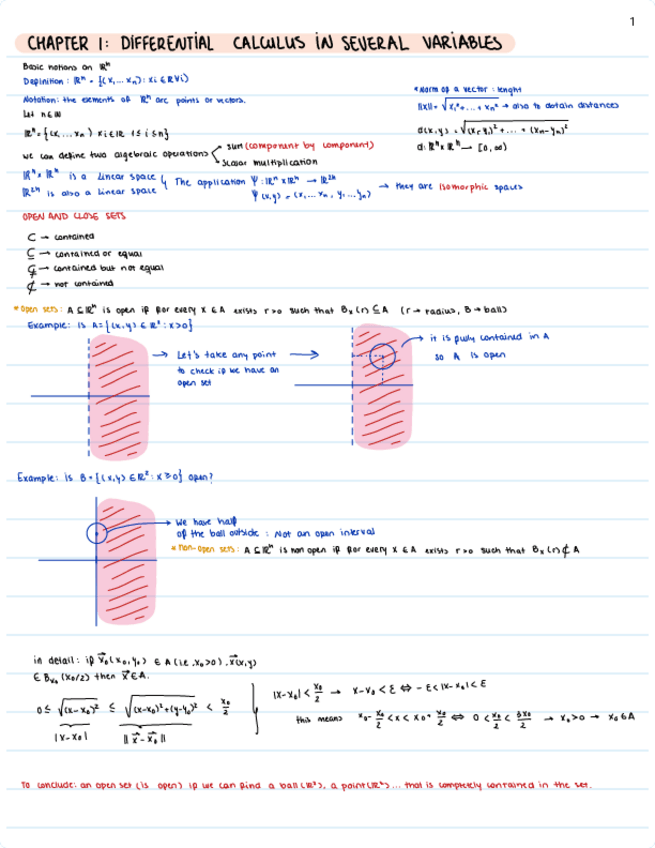 1
CHAPTER 1: DIFFERENTIAL CALCULUS IN SEVERAL VARIABLES
Basic notions on ℝⁿ
Definition: ℝⁿ = {(x₁...xₙ): xi ∈ ℝ ∀i}
Notation: the elements of ℝⁿ are points or vectors.
Let n∈ℕ
ℝⁿ = {(x₁...xₙ) xi∈ℝ 1≤i≤n}
we can define two algebraic operations
sum (component by component)
scalar multiplication
*Norm of a vector: lenght
||x|| = √x₁²+...+xₙ² → also to obtain distances
d(x,y) = √(x₁-y₁)²+...+(xₙ-yₙ)²
d: ℝⁿxℝⁿ → [0,∞)
ℝⁿxℝⁿ is a linear space
ℝ²ⁿ is also a linear space
The application Ψ: ℝⁿxℝⁿ → ℝ²ⁿ
Ψ(x,y) = (x₁...xₙ, y₁...yₙ)
→ they are isomorphic spaces
OPEN AND CLOSE SETS
⊂ → contained
⊆ → contained or equal
⊊ → contained but not equal
⊄ → not contained
*open sets: A⊆ℝⁿ is open if for every x∈A exists r>0 such that Bₓ(r)⊆A (r→radius, B→ball)
Example: is A={(x,y)∈ℝ²: x>0}
→ Let's take any point →
to check if we have an
open set
it is fully contained in A
so A is open
Example: is B={(x,y)∈ℝ²: x≥0} open?
We have half
of the ball outside: Not an open interval
*non-open sets: A⊆ℝⁿ is non open if for every x∈A exists r>0 such that Bₓ(r)⊄A
in detail: if x⃗₀(x₀,y₀) ∈ A (i.e. x₀>0). x⃗(x,y)
∈ Bₓ₀(x₀/2) then x⃗∈A.
0≤ √(x-x₀)² ≤ √(x-x₀)²+(y-y₀)² < x₀/2
|x-x₀|
||x⃗-x⃗₀||
|x-x₀|< x₀/2 → x-x₀<ε ⇔ -ε<|x-x₀|<ε
this means x₀- x₀/2 <x< x₀+ x₀/2 ⇔ 0< x₀/2 < 3x₀/2 → x₀>0 → x₀∈A
To conclude: an open set (is open) if we can find a ball (ℝ³), a point (ℝ²)... that is completely contained in the set.